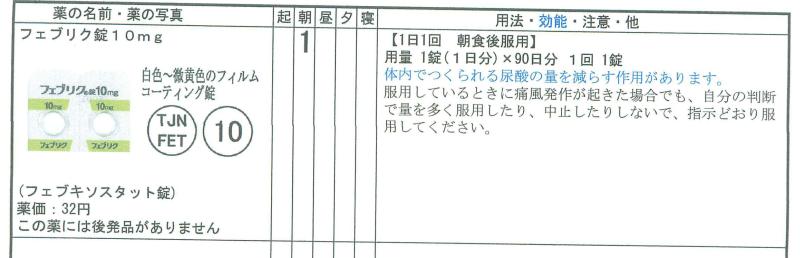 薬の名前・薬の写真 起 朝 昼 夕 寝 用法・効能・注意・他
フェブリク錠10mg
1
白色~微黄色のフィルム
コーティング錠
フェブリク®錠10mg
10mg 10mg
フェブリク フェブリク
TJN
FET
10
(フェブキソスタット錠)
薬価:32円
この薬には後発品がありません
【1日1回 朝食後服用】
用量 1錠(1日分)×90日分 1回 1錠
体内でつくられる尿酸の量を減らす作用があります。
服用しているときに痛風発作が起きた場合でも、自分の判断
で量を多く服用したり、中止したりしないで、指示どおり服
用してください。